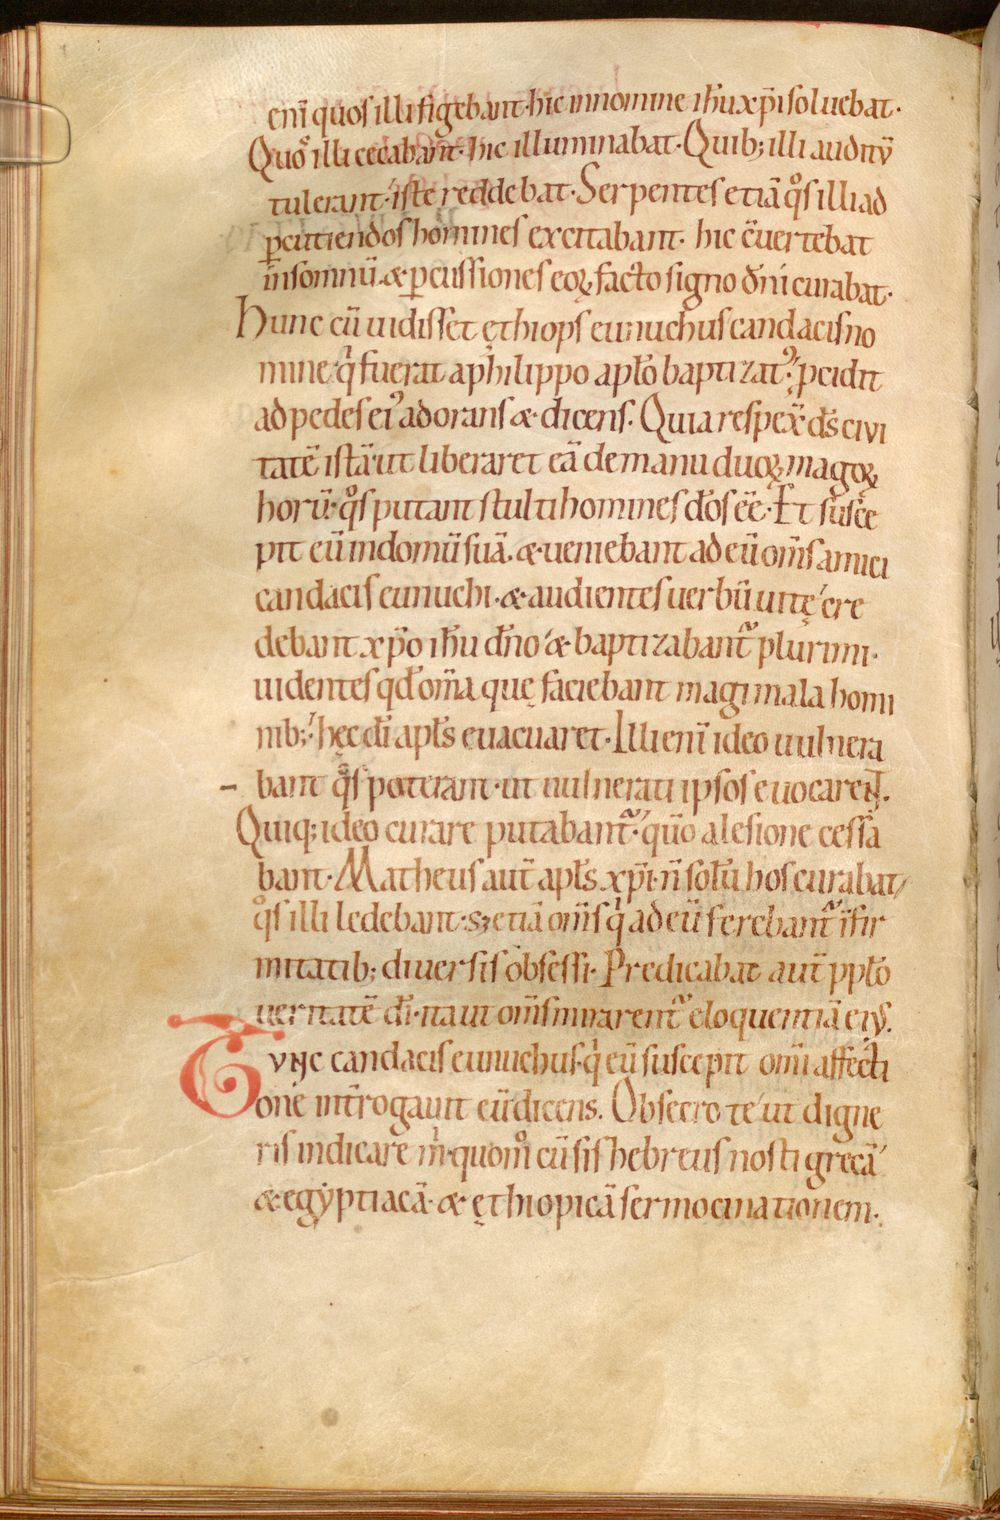 eni̅ quos illi figebant· hic in nomine ihu̅ xp̅i soluebat·
Quoˢ illi cecaban̅t· hic illuminabat· Quib; illi auditu̅
tulerant· iste reddebat· Serpentes etia̅ qͦs illi ad
ꝑcutiendos homines excitabant· hic c̅uertebat
in somnu̅· & ꝑcussiones eoꝝ facto signo dn̅i curabat·
Hunc cu̅ uidisset ęthiops eunuchus candacis no
mine qͥ fuerat a philippo aplo̅ baptizatꝰ; p̱cidit
ad pedes eiꝰ adorans & dicens· Quia respex̅ ds̅ civi
tate̅ ista̅ ut liberaret ea̅ de manu duoꝝ magoꝝ
horu̅· qͦs putant stulti homines do̅s ee̅· Et susce
pit eu̅ in domu̅ sua̅· & ueniebant ad eu̅ om̅s amici
candacis eunuchi· & audientes uerbu̅ uitę cre
debant xp̅o ihu̅ dn̅o & baptizabant᷑ plurimi·
uidentes qd̅ om̅a quę faciebant magi mala homi
nib; hęc di̅ apls̅ euacuaret· Illi eni̅ ideo uulnera
bant qͦs poterant· ut uulnerati ipsos euocarent·
Quiq; ideo curare putabant᷑· qu̅o a lesione cessa
bant· Matheus aut̅ apls̅ xp̅i· n̅ solu̅ hos curabat
qͦs illi ledebant· sꝫ etia̅ om̅s qͥ ad eu̅ ferebant᷑ i̅fir
mitatib; diuersis obsessi· Predicabat aut̅ pplo̅
ueritate̅ di̅· ita ut om̅s mirarent᷑ eloquentia̅ eiꝰ·
Tunc candacis eunuchus· qͥ eu̅ suscepit omi̅ affecti
one int̅rogauit eu̅ dicens· Obsecro te ut digne
ris indicare mͥ· quomͦ cu̅ sis hebreus nosti greca̅
& egyptiaca̅· & ęthiopica̅ sermocinationem·